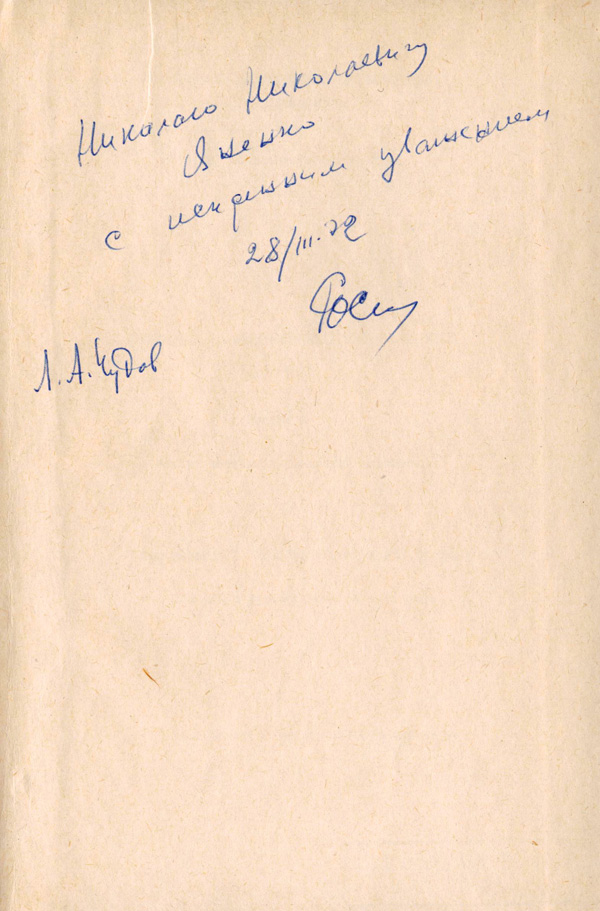 Николаю Николаевичу
Яненко
с искренним уважением
28/III.72
Л.А. Чудов